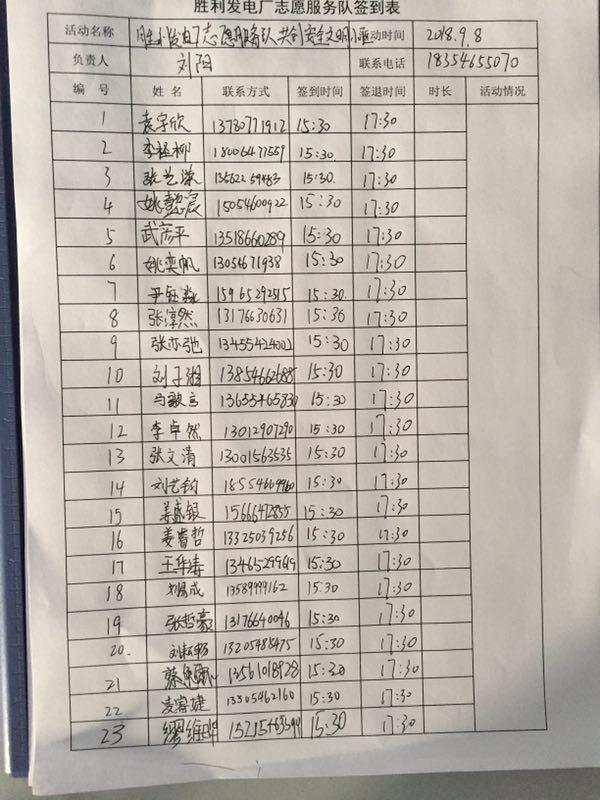 胜利发电厂志愿服务队签到表
活动名称 胜利发电厂志愿服务队共创安全文明小 活动时间 2018.9.8
负责人 刘阳 联系电话 18354655070
编 号 姓 名 联系方式 签到时间 签退时间 时长 活动情况
1 袁宇欣 13780771912 15:30 17:30
2 李 柳 18006477559 15:30. 17:30
3 张艺潆 13562259483 15:30. 17:30
4 姚懿宸 15054600922 15:30 17:30
5 武彦平 13518660289 15:30 17:30
6 姚奕帆 13054671938 15:30 17:30
7 尹钰 15965292515 15:30. 17:30
8 张淳然 13176630631 15:30 17:30
9 张亦弛 13455424002 15:30 17:30
10 刘子湘 13854662688 15:30 17:30
11 马歌言 13655465830 15:30 17:30
12 李卓然 13012907290 15:30 17:30
13 张文清 13001563535 15:30 17:30
14 刘艺钧 18554669960 15:30 17:30
15 姜盛银 15666472855 15:30 17:30
16 姜睿哲 13325039256 15:30 17:30
17 王华涛 13465299649 15:30 17:30
18 刘易成 13589999162 15:30 17:30
19 张哲豪 13176640046 15:30 17:30
20. 15:30 13205488475 17:30
21 13561018928 15:30 17:30
22 凌睿婕 13305462160 15:30 17:30
23 缪维 15:30 17:30